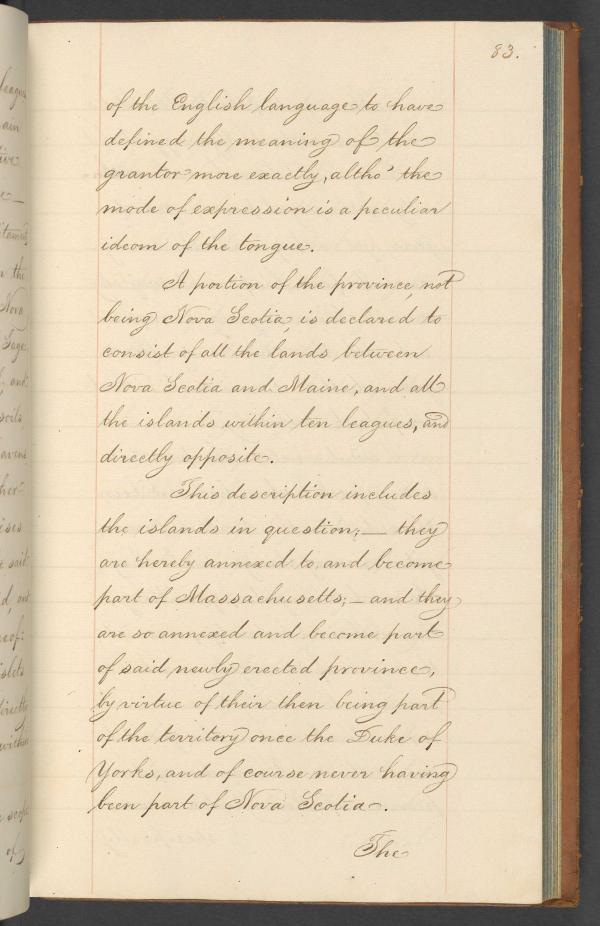 83.
of the English language to have
defined the meaning of the
grantor more exactly, altho' the
mode of expression is a peculiar
ideom of the tongue.
A portion of the province, not
being Nova Scotia, is declared to
consist of all the lands between
Nova Scotia and Maine, and all
the islands within ten leagues, and
directly opposite.
This description includes
the islands in question; — they
are hereby annexed to and become
part of Massachusetts; — and they
are so annexed and become part
of said newly erected province,
by virtue of their then being part
of the territory once the Duke of
Yorks, and of course never having
been part of Nova Scotia.
The